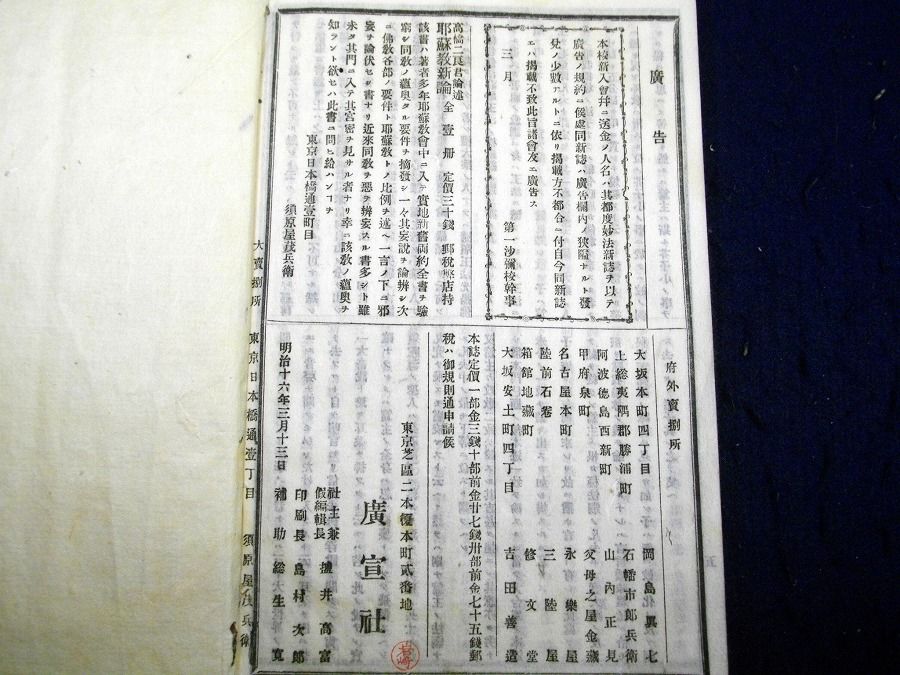 廣告
本校新入會幷ニ送金ノ人名ハ其都度妙法新誌ヲ以テ
廣告ノ規約ニ候處同新誌ハ廣告欄內ノ狹隘ナルト發
兌ノ少數アルトニ依リ揭載方不都合ニ付自今同新誌
エハ揭載不致此旨諸會友エ廣告ス
三月
第一沙彌校幹事
高橋二良君論述
耶蘇敎新論 全壹冊 定價三十錢 郵稅弊店持
該書ハ著者多年耶蘇敎會中ニ入テ實地新舊兩約全書ヲ驗
窮シ同敎ノ蘊奧タル要件ヲ摘發シ一々其妄說ヲ論辨シ次
ニ佛敎各部ノ要件ト耶蘇敎トノ比例ヲ述ヘ一言ノ下ニ邪
妄ヲ論伏セシ書ナリ近來同敎ヲ惡ヲ辨妄スル書多シト雖
未タ其門ニ入テ其宮密ヲ見サル者ナリ幸ニ該敎ノ蘊奧ヲ
知ラント欲セハ此書ニ問ヒ給ハンコヲ
東京日本橋通壹町目
須原屋茂兵衛
府外賣捌所
大坂本町四丁目 岡島眞七
上總夷隅郡勝浦町 石幡市郎兵衛
阿波德島西新町 山內正見
甲府泉町 父母之屋金藏
名古屋本町 永樂屋
陸前石卷 三陸屋
箱館地藏町 修文堂
大坂安土町四丁目 吉田善造
本誌定價一部金三錢十部前金廿七錢卅部前金七十五錢郵
稅ハ御規則通申請候
東京芝區二本榎本町貳番地
廣宣社
社主兼
假編輯長 井高富
印刷長 島村次郎
補助 總生寬
明治十六年三月十三日
大賣捌所 東京日本橋通壹丁目 須原屋茂兵衛